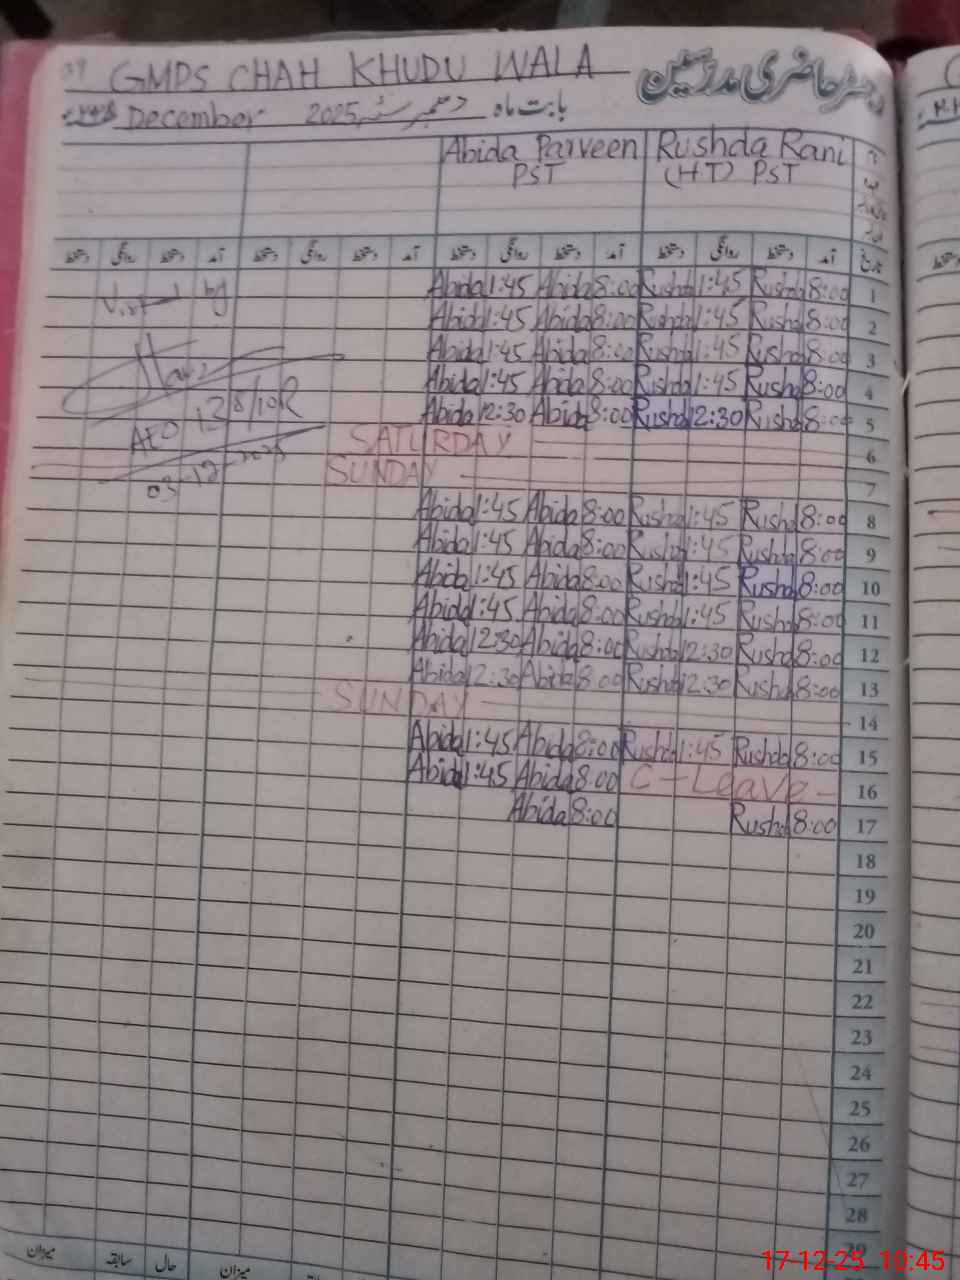 GMPS CHAH KHUDU WALA رجسٹر حاضری مدرسین
December 2025 دسمبر سنہ بابت ماہ
Abida Parveen Rushda Rani
PST (HT) PST
دستخط روانگی دستخط آمد دستخط روانگی دستخط آمد دستخط روانگی دستخط آمد دستخط روانگی دستخط آمد تاریخ
Abida 1:45 Abida 8:00 Rushda 1:45 Rushda 8:00 1
Abida 1:45 Abida 8:00 Rushda 1:45 Rushda 8:00 2
Abida 1:45 Abida 8:00 Rushda 1:45 Rushda 8:00 3
Abida 1:45 Abida 8:00 Rushda 1:45 Rushda 8:00 4
Abida 12:30 Abida 8:00 Rushd 12:30 Rushd 8:00 5
SATURDAY 6
SUNDAY 7
Abida 1:45 Abida 8:00 Rushd 1:45 Rushd 8:00 8
Abida 1:45 Abida 8:00 Rushda 1:45 Rushda 8:00 9
Abida 1:45 Abida 8:00 Rushd 1:45 Rushda 8:00 10
Abida 1:45 Abida 8:00 Rushda 1:45 Rushda 8:00 11
Abida 12:30 Abida 8:00 Rushda 12:30 Rushd 8:00 12
Abida 12:30 Abida 8:00 Rushda 12:30 Rushda 8:00 13
SUNDAY 14
Abida 1:45 Abida 8:00 Rushd 1:45 Rushda 8:00 15
Abida 1:45 Abida 8:00 C-Leave 16
Abida 8:00 Rushd 8:00 17
18
19
20
21
22
23
24
25
26
27
28
29
Visited by
AEO 128/10R
03-12-2025
میزان سابقہ حال میزان
17-12-25 10:45